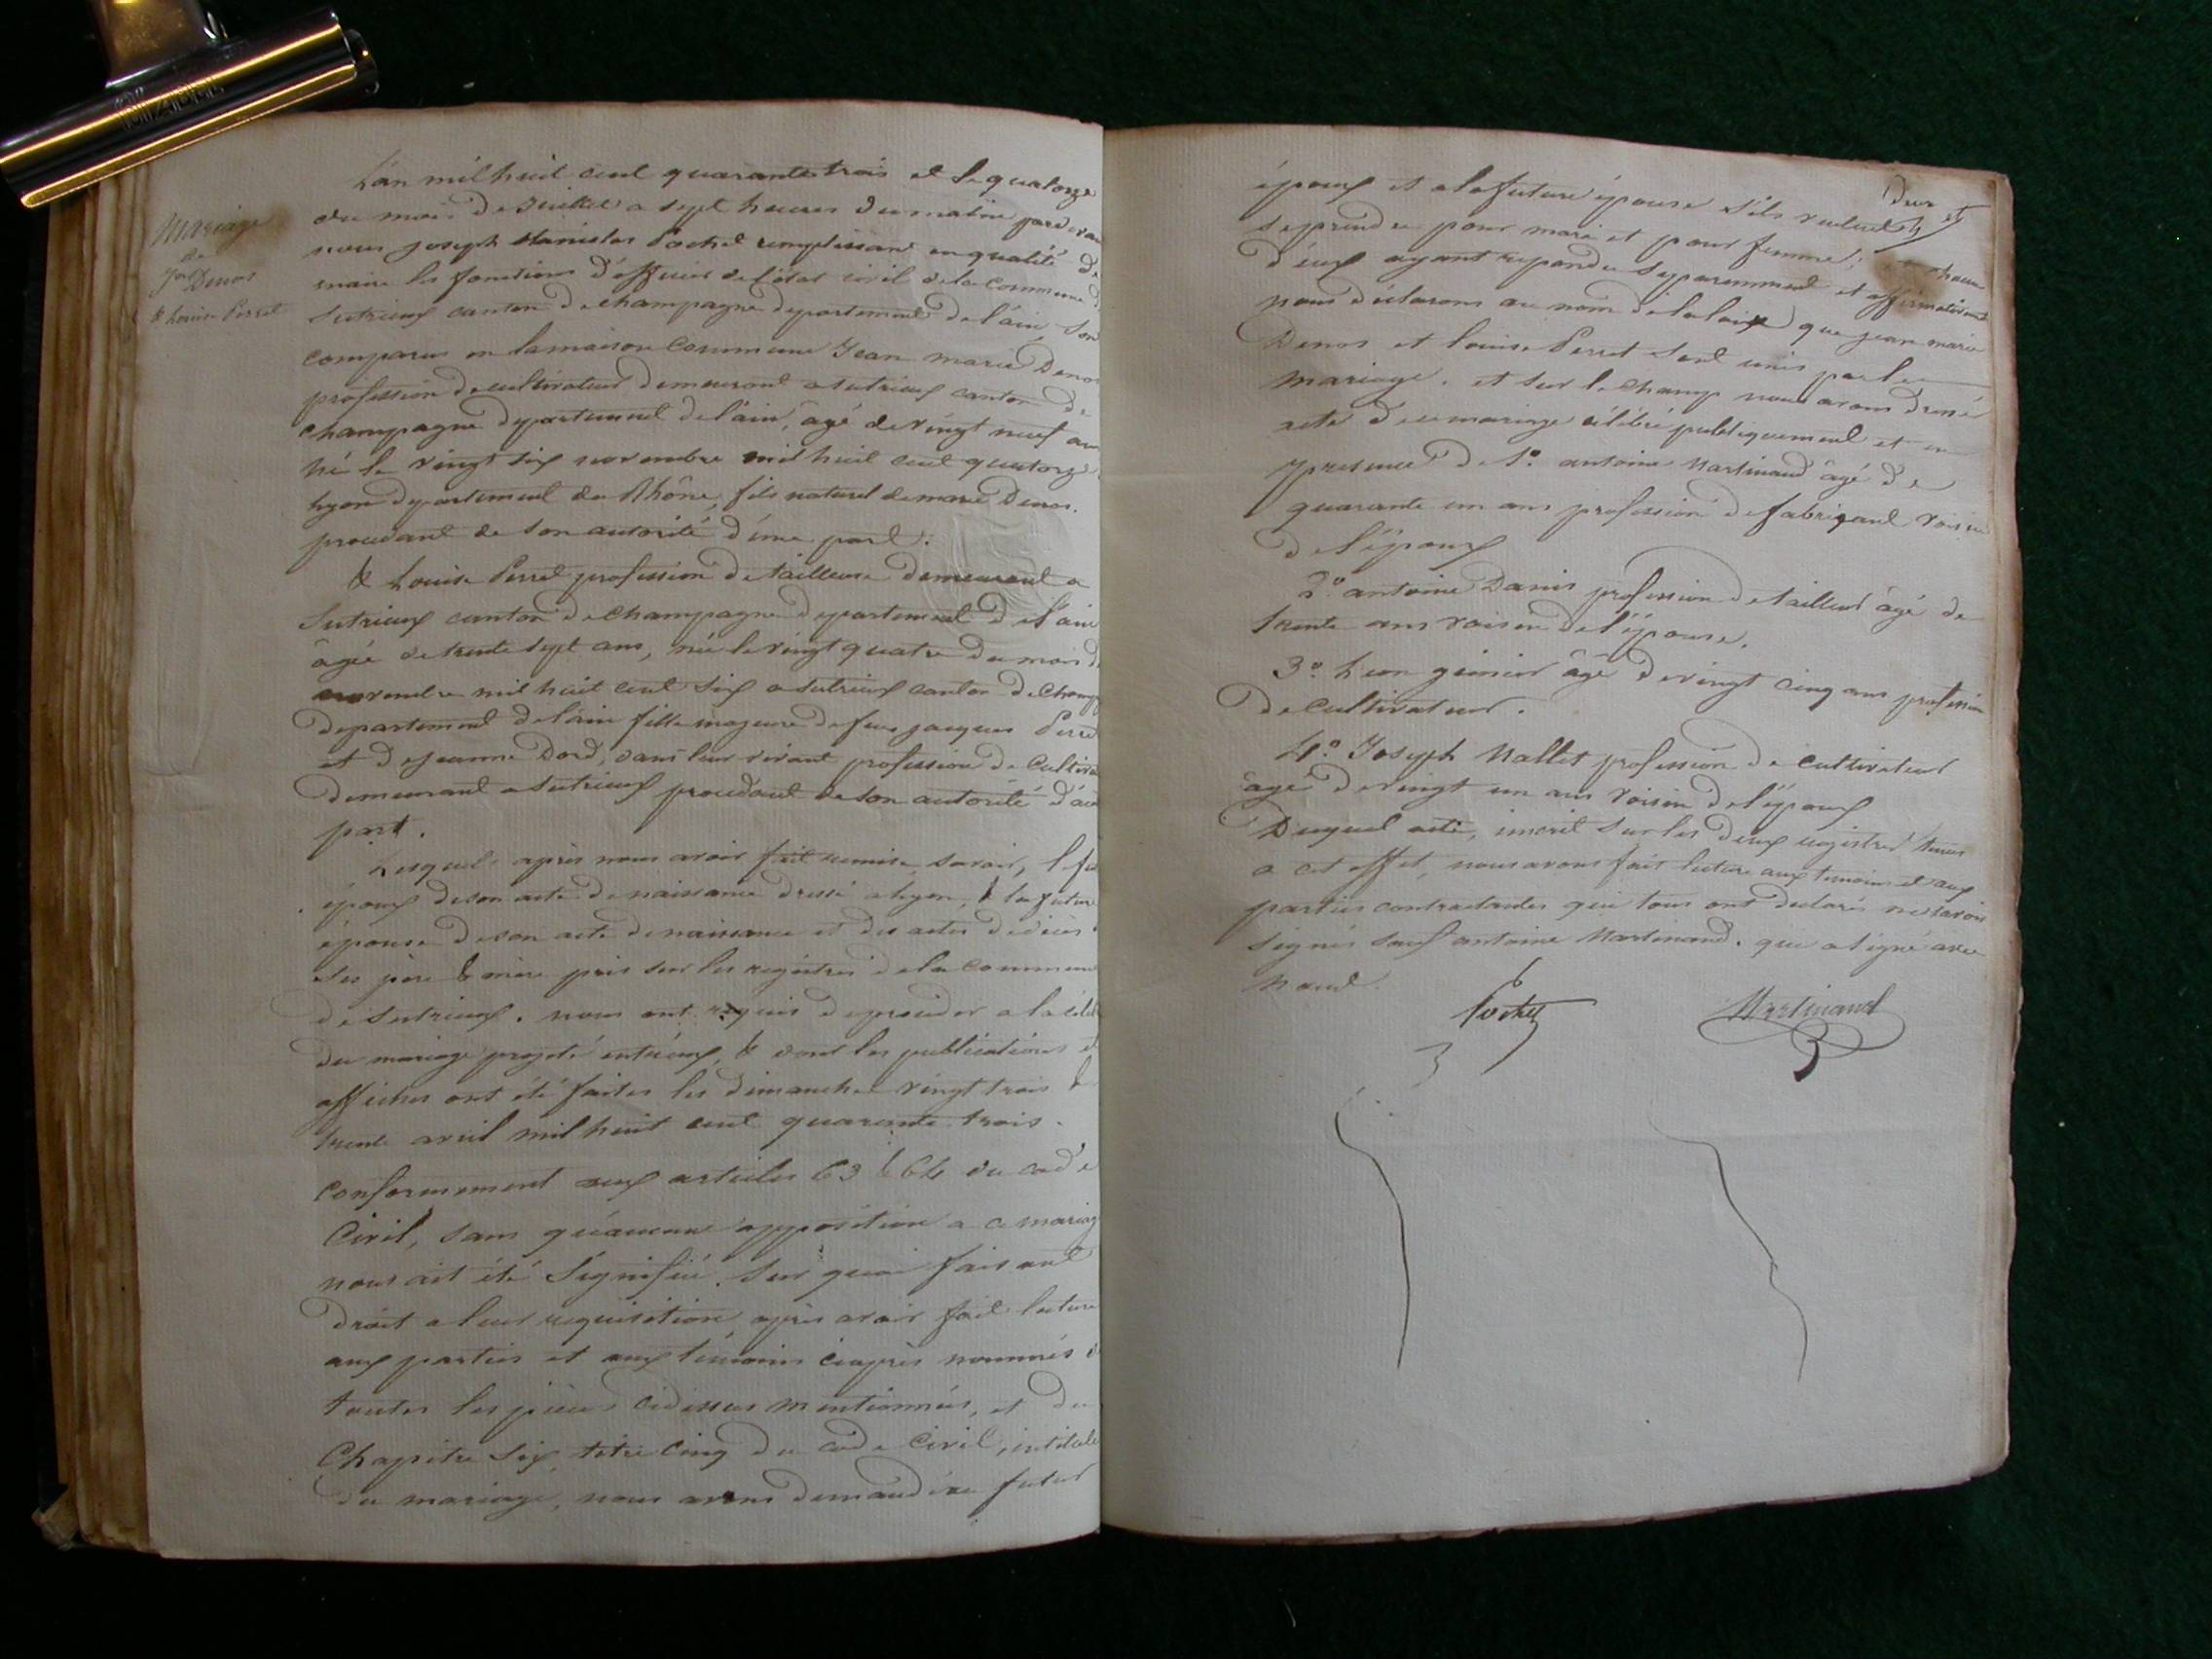 Mariage
de
Denos
& Louise Perret
L'an mil huit cent quarante trois et le quatorze
du mois de Juillet a sept heures du matin pardevan
nous joseph stanislas Pochet remplissant en qualité de
maire les fonctions d'officier de l'état civil de la commune de
Sutrieux canton de champagne departement de l'ain, Son
comparus en la maison commune Jean marie Denos
profession de cultivateur demeurant a sutrieux canton de
champagne departement de l'ain, âgé de vingt neuf an
né le vingt six novembre mil huit cent quatorze
lyon departement du Rhône, fils naturel de marie Denos.
procedant de son autorité d'une part.
& Louise Perret profession de tailleuse demeurant a
Sutrieux canton de champagne departement de l'ain
âgée de trente sept ans, née le vingt quatre du mois d
mil huit cent six a sutrieux canton de Champ
departement de l'ain fille majeure de feus jacques Perre
et de jeanne Dord, dans leur vivant profession de Cultiva
demeurant a sutrieux procedant de son autorité d'au
part.
Lesquels après nous avoir fait remise, savoir, le fu
époux de son acte de naissance dressé a lyon, & la future
épouse de son acte de naissance et des actes de décès
des père & mère pris sur les registres de la commune
de sutrieux. nous ont requis de proceder a la célé
du mariage projeté entr'eux, & dont les publications et
affiches ont été faites les dimanches vingt trois &
trente avril mil huit cent quarante trois.
conformement aux articles 63 & 64 du code
Civil, sans qu'aucune opposition a ce mariag
nous ait été signifiée. Sur quoi faisant
droit a leur requisition, après avoir fait lecture
aux parties et aux témoins ciaprès nommés d
toutes les pièces cidessus mentionnées, et du
Chapitre Six, titre Cinq du code Civil, intitulé
du mariage, nous avons demandé au futur
époux et a la future épouse s'ils veulent
se prendre pour mari et pour femme; chacun
d'eux ayant repondu separemment et affirmativement
nous déclarons au nom de la loi que jean marie
Denos et louise Perret sont unis par le
mariage. et sur le champ nous avons dressé
acte de ce mariage célébré publiquement et en
presence de 1.º antoine Martinand âgé de
quarante un ans profession de fabriquant voisin
de l'époux
2.º antoine Danis profession de tailleur âgé de
trente ans voisin de l'épouse.
3.º Leon âgé de vingt cinq ans profession
de Cultivateur.
4.º Joseph Mallet profession de cultivateur
âgé de vingt un ans voisin de l'époux
Duquel acte, inscrit sur les deux registres tenus
a cet effet, nous avons fait lecture aux temoins et aux
parties contractantes qui tous ont declarés ne savoir
signés sauf antoine Martinand. qui a signé avec
nous.
Pochet
Martinand